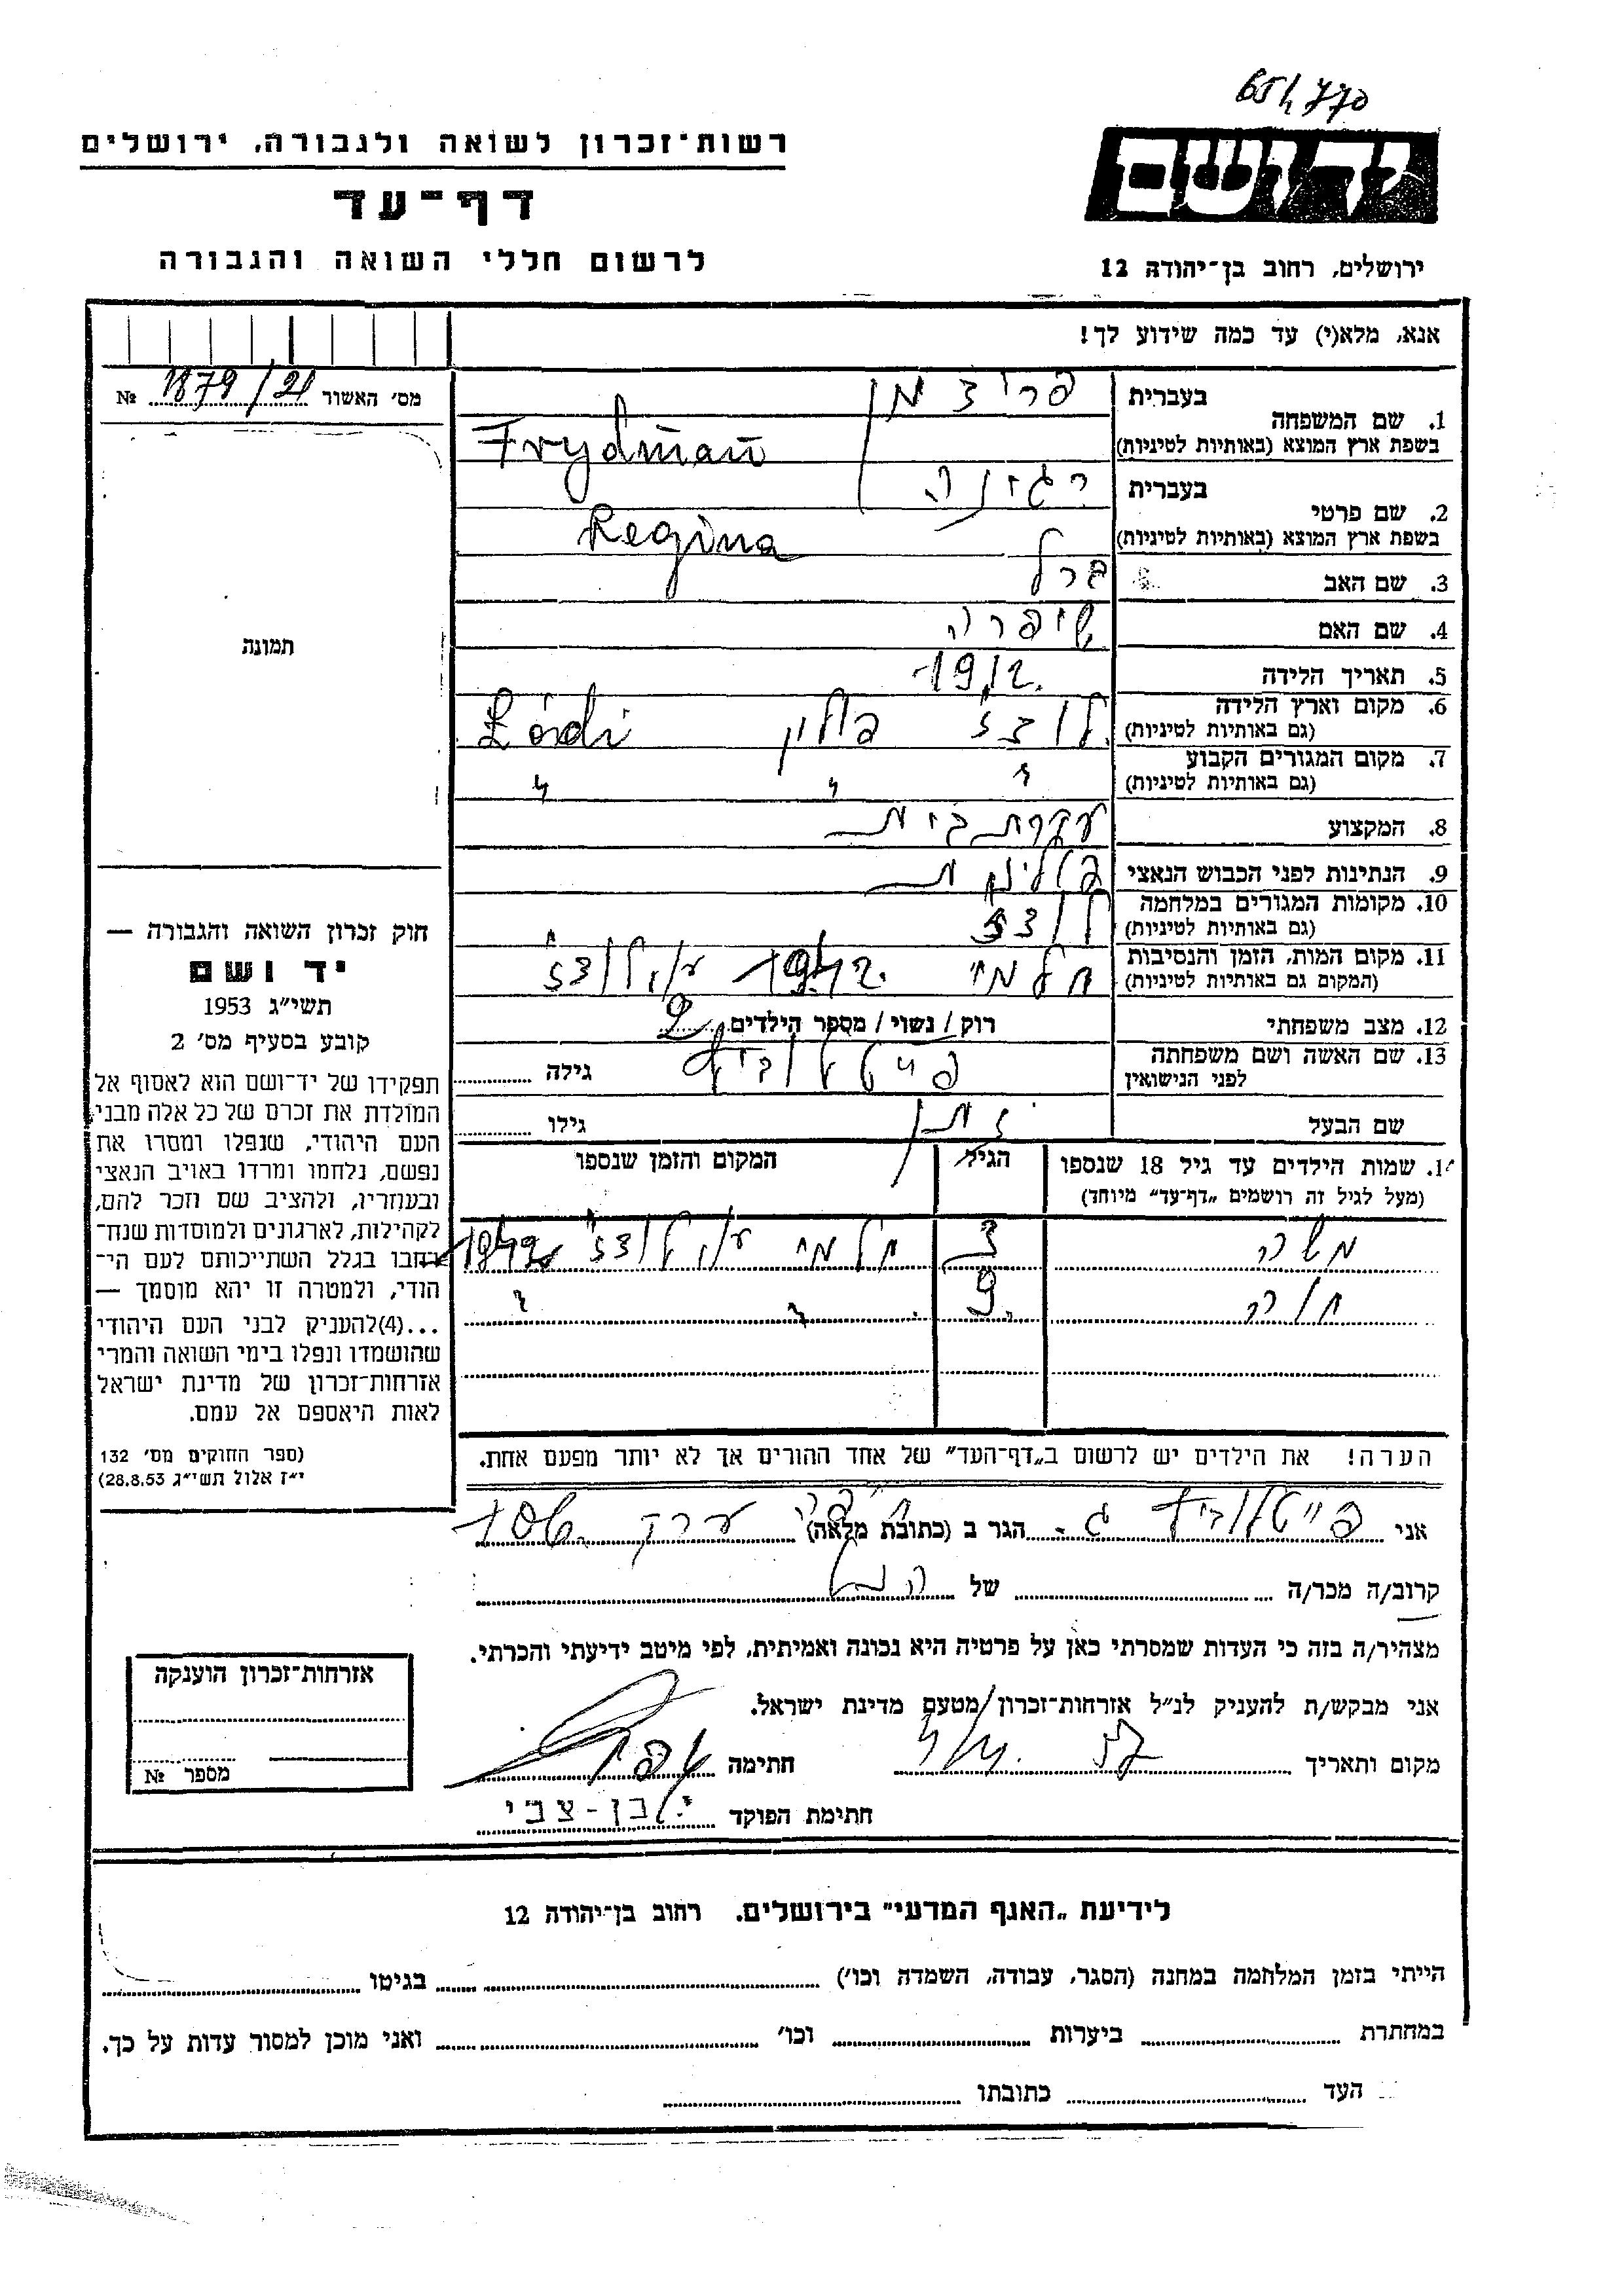 65/770
רשות־זכרון לשואה ולגבורה, ירושלים
יד ושם
דף־עד
לרשום חללי השואה והגבורה
ירושלים, רחוב בן־יהודה 12
אנא, מלא(י) עד כמה שידוע לך!
מס׳ האשור 1879/21 №
1. שם המשפחה
בעברית פרידמן
בשפת ארץ המוצא (באותיות לטיניות) Frydman
2. שם פרטי
בעברית רגינה
בשפת ארץ המוצא (באותיות לטיניות) Regina
3. שם האב ברל
4. שם האם שיפרה
5. תאריך הלידה 1912.
6. מקום וארץ הלידה
(גם באותיות לטיניות) לודז׳ פולין Łódź
7. מקום המגורים הקבוע
(גם באותיות לטיניות) " " "
8. המקצוע עקרת בית
9. הנתינות לפני הכבוש הנאצי פולנית
10. מקומות המגורים במלחמה
(גם באותיות לטיניות) לודז׳
11. מקום המות, הזמן והנסיבות
(המקום גם באותיות לטיניות) חלמי 1942. ע״י לודז׳
12. מצב משפחתי רוק / נשוי / מספר הילדים 2
13. שם האשה ושם משפחתה
לפני הנישואין פייטלוביץ גילה
שם הבעל נתן גילו
14. שמות הילדים עד גיל 18 שנספו
(מעל לגיל זה רושמים „דף־עד” מיוחד)
הגיל
המקום והזמן שנספו
משה 3 חלמי ע״י לודז׳ 1942
חוה 9. " "
תמונה
חוק זכרון השואה והגבורה —
יד ושם
תשי״ג 1953
קובע בסעיף מס׳ 2
תפקידו של יד־ושם הוא לאסוף אל
המולדת את זכרם של כל אלה מבני
העם היהודי, שנפלו ומסרו את
נפשם, נלחמו ומרדו באויב הנאצי
ובעוזריו, ולהציב שם וזכר להם,
לקהילות, לארגונים ולמוסדות שנח־
רבו בגלל השתייכותם לעם הי־
הודי, ולמטרה זו יהא מוסמך —
...(4)להעניק לבני העם היהודי
שהושמדו ונפלו בימי השואה והמרי
אזרחות־זכרון של מדינת ישראל
לאות היאספם אל עמם.
(ספר החוקים מס׳ 132
י״ז אלול תשי״ג 28.8.53)
הערה! את הילדים יש לרשום ב„דף־העד” של אחד ההורים אך לא יותר מפעם אחת.
אני פייטלוביץ ג. הגר ב (כתובת מלאה) חיפה
קרוב/ה מכר/ה של
מצהיר/ה בזה כי העדות שמסרתי כאן על פרטיה היא נכונה ואמיתית, לפי מיטב ידיעתי והכרתי.
אני מבקש/ת להעניק לנ״ל אזרחות־זכרון/מטעם מדינת ישראל.
מקום ותאריך חתימה
חתימת הפוקד י. בן-צבי
אזרחות־זכרון הוענקה
מספר №
לידיעת „האגף המדעי” בירושלים. רחוב בן־יהודה 12
הייתי בזמן המלחמה במחנה (הסגר, עבודה, השמדה וכו׳) בגיטו
במחתרת ביערות וכו׳ ואני מוכן למסור עדות על כך.
העד כתובתו